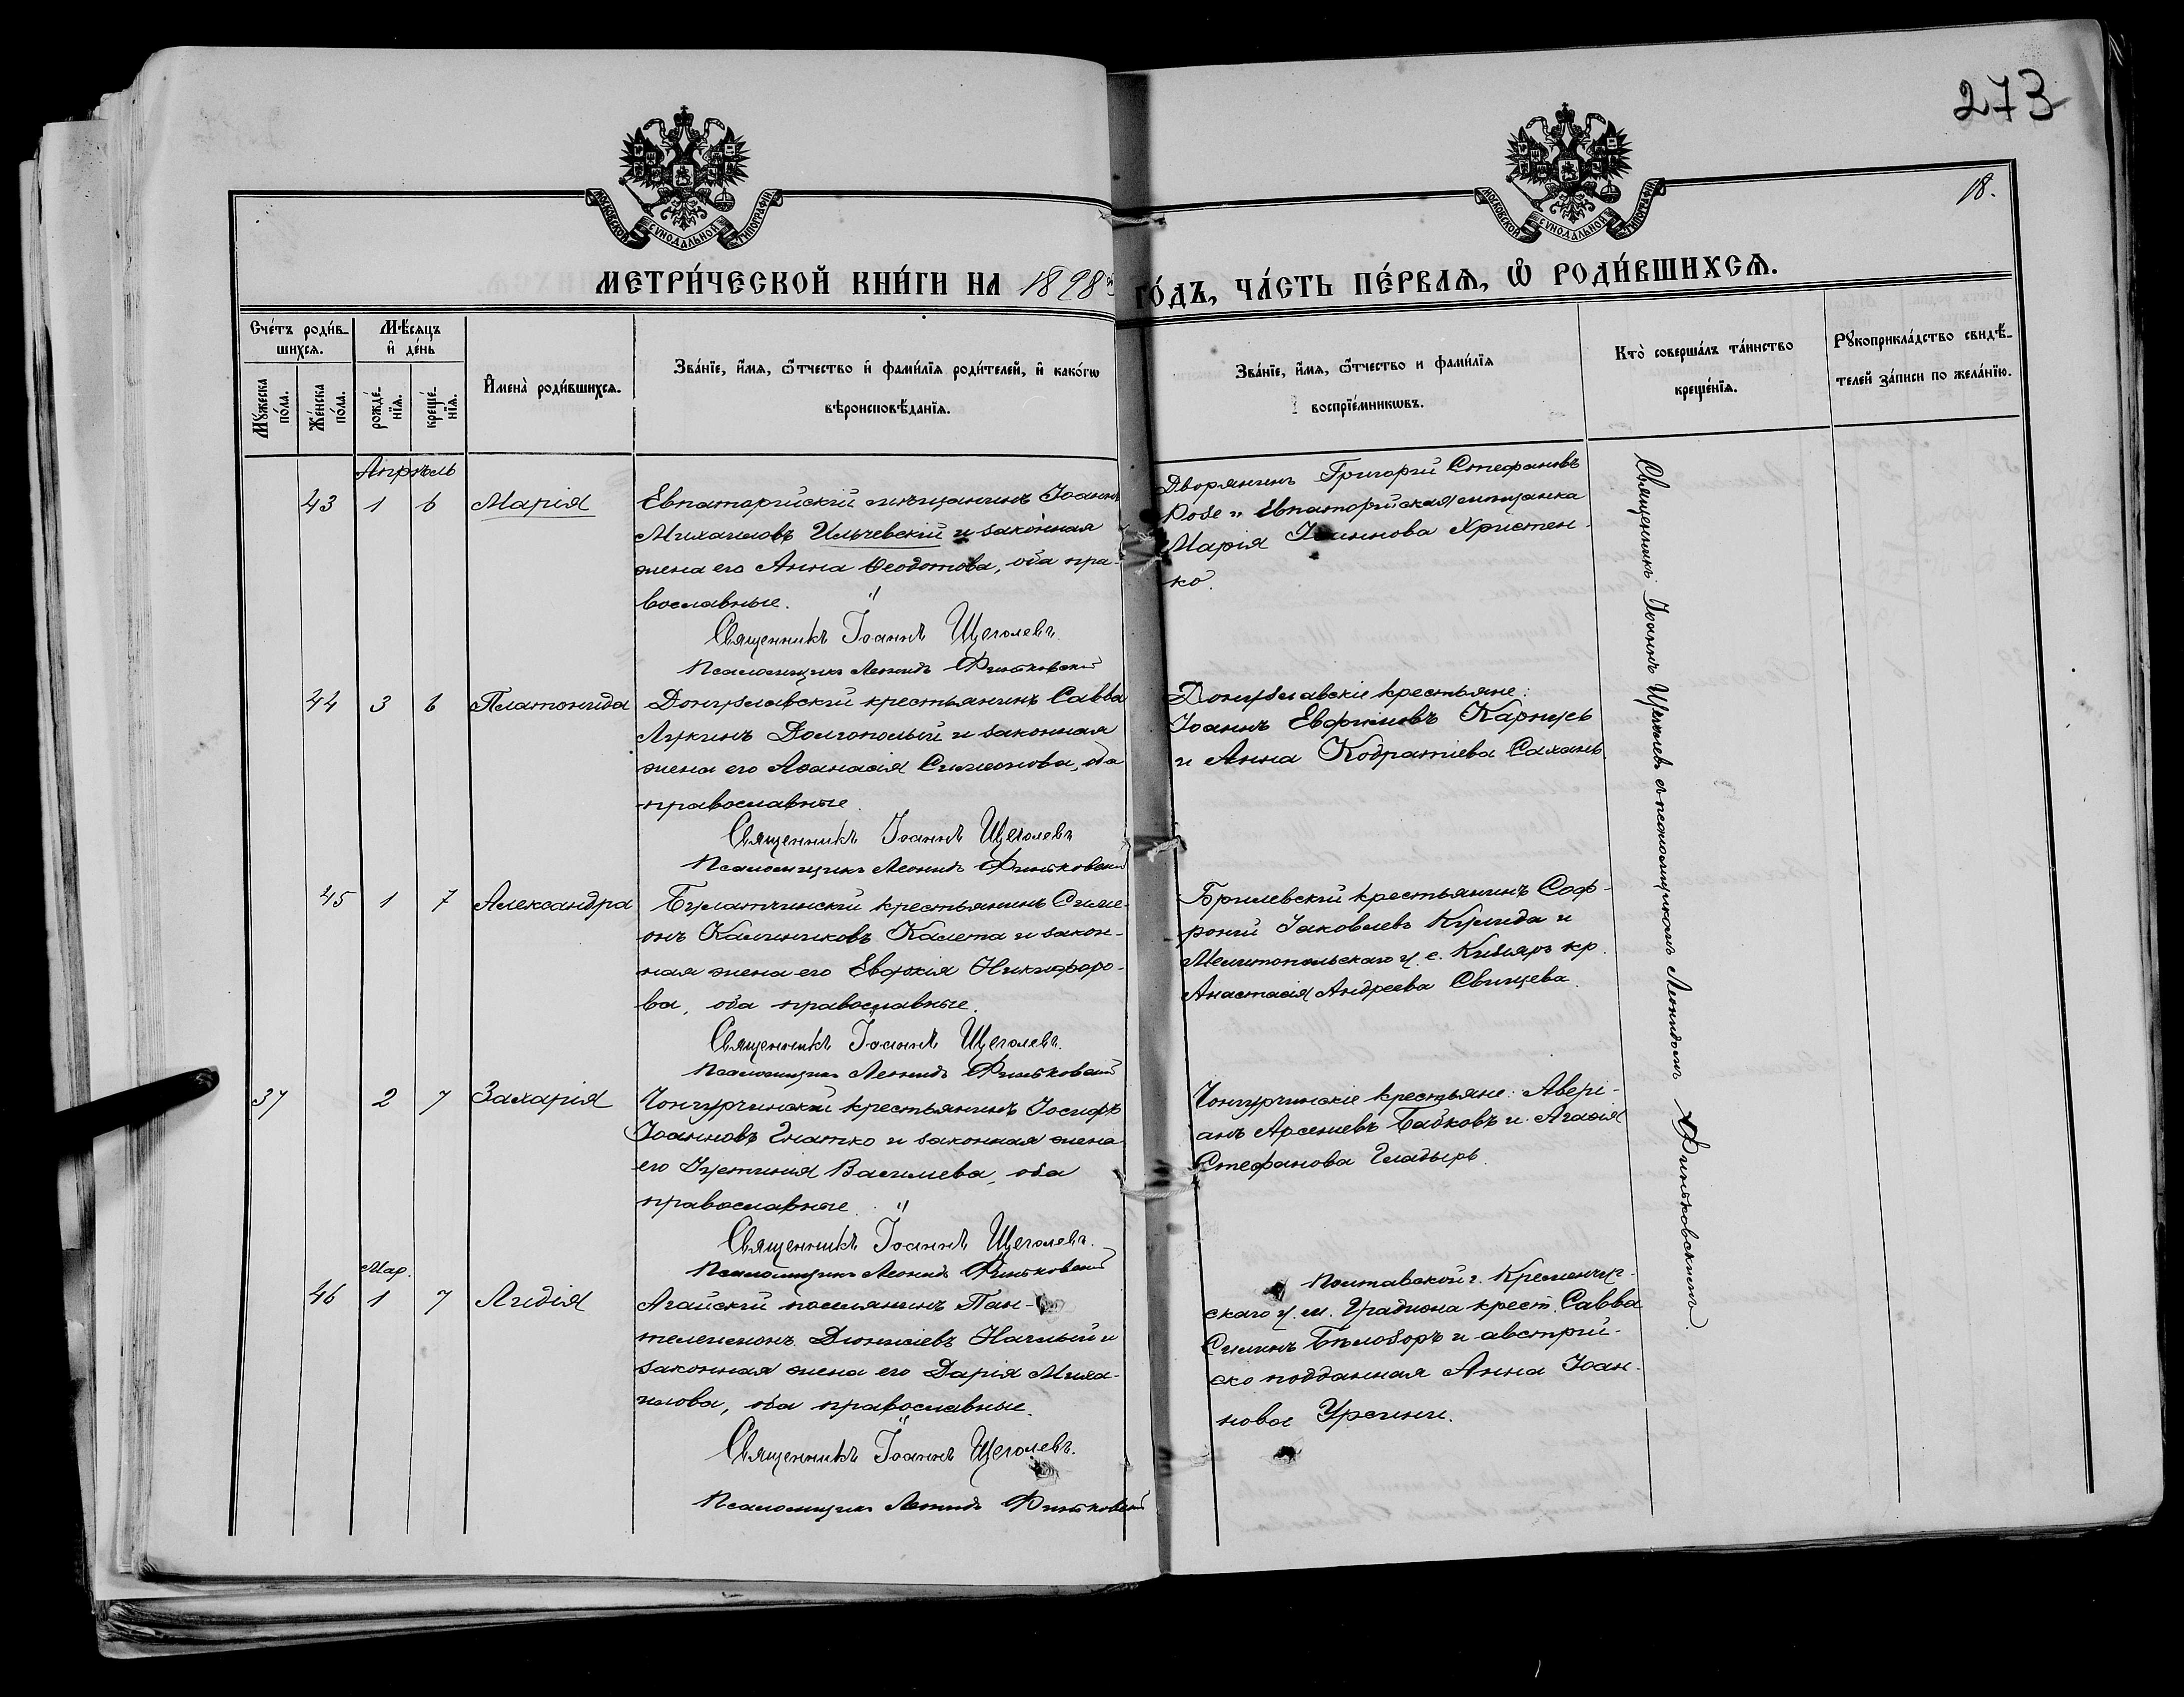 273
18.
МОСКОВСКОЙ СѴНОДАЛЬНОЙ ТИПОГРАФІИ
МОСКОВСКОЙ СѴНОДАЛЬНОЙ ТИПОГРАФІИ
МЕТРИ́ЧЕСКОЙ КНИ́ГИ НА 1898й ГО́ДЪ, ЧА́СТЬ ПЕ́РВАѦ, Ѽ РОДИ́ВШИХСѦ.
Сче́тъ роди́в-
шихсѧ.
Мꙋ́жеска по́ла.
Же́нска по́ла.
Мѣ́сѧцъ и де́нь
рожде́-нїѧ.
креще́-нїѧ.
Имена̀ роди́вшихсѧ.
Зва́нїе, и́мѧ, ѻ́тчество и фами́лїѧ роди́телей, и како́гѡ
вѣроисповѣ́данїѧ.
Зва́нїе, и́мѧ, ѻ́тчество и фами́лїѧ
воспрїе́мникѡвъ.
Кто̀ соверша́лъ та́инство
креще́нїѧ.
Рꙋкоприкла́дство свидѣ́-
телей за́писи по жела́нїю.
Апрѣль
43 1 6 Марія
Евпаторійскій мѣщанинъ Іоаннъ
Михаиловъ Ильчевскій и законная
жена его Анна Ѳеодотова, оба пра-
вославные.
Священникъ Іоаннъ Щеголевъ.
Псаломщикъ Леонидъ Финьковскій
Дворянинъ Григорій Стефановъ
Робе и Евпаторійская мещанка
Марія Іоаннова Христен-
ко.
Священникъ Іоаннъ Щеголевъ съ псаломщикомъ Леонидомъ Финьковскимъ.
44 3 6 Платонида
Донузлавскій крестьянинъ Савва
Лукинъ Долгополый и законная
жена его Аѳанасія Симеонова, оба
православные.
Священникъ Іоаннъ Щеголевъ
Псаломщикъ Леонидъ Финьковскій
Донузлавскіе крестьяне:
Іоаннъ Евфиміевъ Карпусь
и Анна Кодратіева Саханъ.
45 1 7 Александра
Булатчинскій крестьянинъ Симе-
онъ Калинниковъ Калета и закон-
ная жена его Евдокія Никифоро-
ва, оба православные.
Священникъ Іоаннъ Щеголевъ.
Псаломщикъ Леонидъ Финьковскій
Брилевскій крестьянинъ Соф-
роній Іаковлевъ Кулида и
Мелитопольскаго у. с. Кизляръ кр.
Анастасія Андреева Свищева.
37 2 7 Захарія
Чонгурчинскій крестьянинъ Іосифъ
Іоанновъ Гнатко и законная жена
его Іустинія Васильева, оба
православные.
Священникъ Іоаннъ Щеголевъ.
Псаломщикъ Леонидъ Финьковскій
Чонгурчинскіе крестьяне: Авері-
анъ Арсеніевъ Бабковъ и Агафія
Стефанова Гладырь.
Мар.
46 1 7 Лидія
Агайскій поселянинъ Пан-
телеимонъ Діонисіевъ Наглый и
законная жена его Дарія Миха-
илова, оба православные.
Священникъ Іоаннъ Щеголевъ.
Псаломщикъ Леонидъ Финьковскій
Полтавской г. Кременчуг-
скаго у. м. Градижа крест. Савва
Силинъ Бѣлоборъ и австрій-
ско подданная Анна Іоан-
нова Урсини.